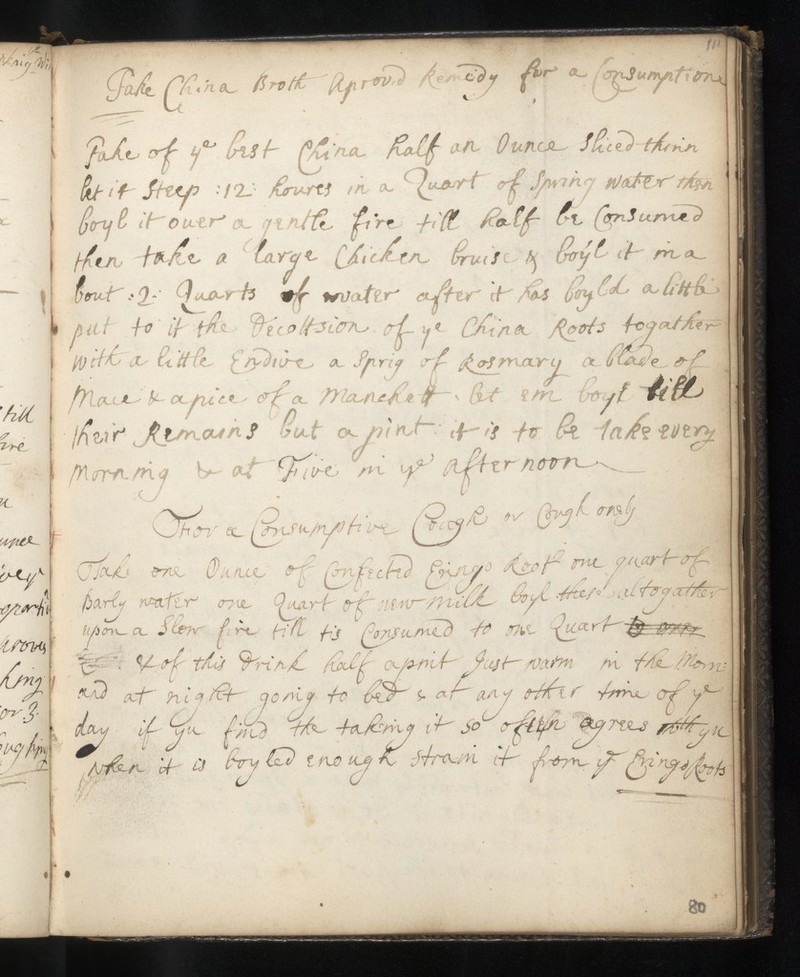 111
Take China Broth Aprovd Remedy for a Consumptione
Take of ye best China half an Ounce Sliced thinn
let it Steep :12: houres in a Quart of Spring water then
boyl it ouer a gentle fire till half be Consumed
then take a large Chicken bruise & boyl it in a
bout :2: Quarts of water after it has boyld a little
put to it the Decoltsion of ye China Roots togather
with a little Endive a Sprig of Rosmary a blade of
Mace & a pice of a Manchett let em boyl till
their Remains but a pint it is to be take every
morning & at Five in ye after noon
For a Consumptive Cough or Cough onely
Take one Ounce of Confected Eringo Root one quart of
barly water one Quart of new milk boyl these altogather
upon a Slow fire till tis Consumed to one Quart
& of this Drink half a pint Just warm in the Morn:
and at night going to bed & at any other time of ye
day if yu find the taking it so often agrees with yu
when it is boyled enough strain it from ye Eringo Roots
80
till